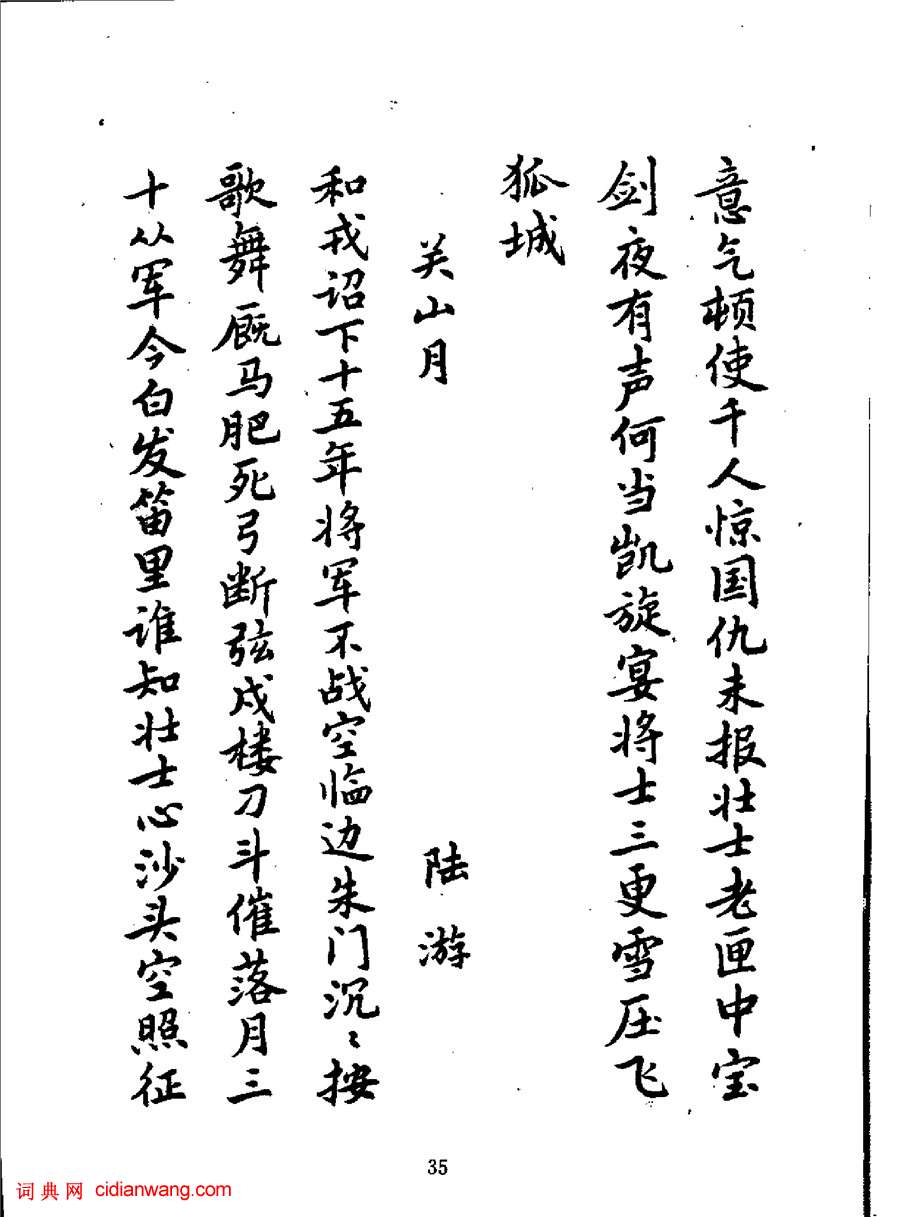 意气顿使千人惊国仇未报壮士老匣中宝
剑夜有声何当凯旋宴将士三更雪压飞
狐城
关山月 陆游
和戎诏下十五年将军不战空临边朱门沉〻按
歌舞厩马肥死弓断弦戍楼刀斗催落月三
十从军今白发笛里谁知壮士心沙头空照征
35
词典网 cidianwang.com